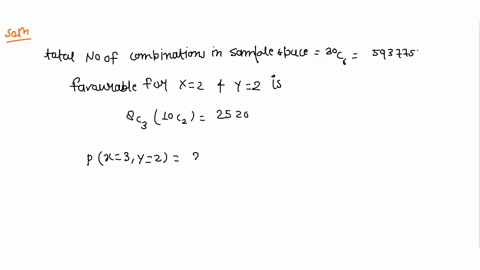 Soln
total No of combinations in sample space = 30C6 = 593775.
favourable for x=2 + y=2 is
8C3 (10C2) = 2520
p(x=3, y=2) = ?